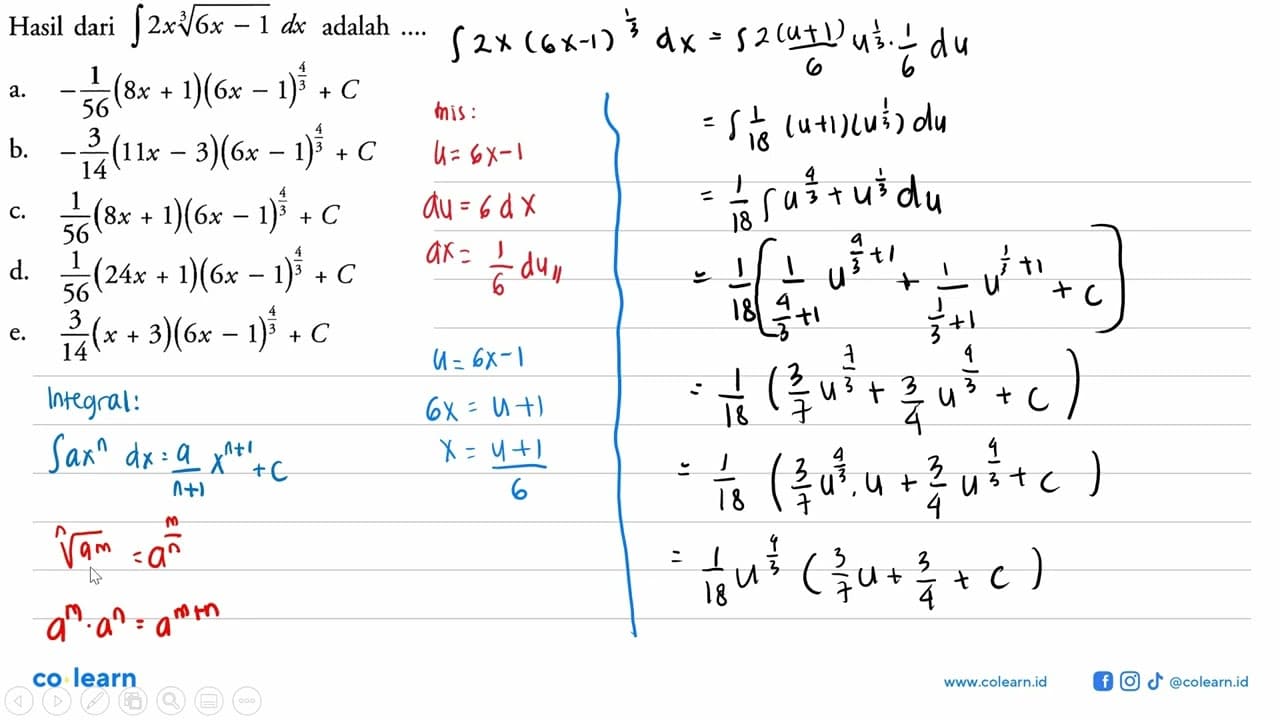 Hasil dari ∫ 2x∛(6x − 1) dx adalah ....
a. −1/56 (8x + 1)(6x − 1)^(4/3) + C
b. −3/14 (11x − 3)(6x − 1)^(4/3) + C
c. 1/56 (8x + 1)(6x − 1)^(4/3) + C
d. 1/56 (24x + 1)(6x − 1)^(4/3) + C
e. 3/14 (x + 3)(6x − 1)^(4/3) + C
Integral:
∫ax^n dx = a/(n+1) x^(n+1) + C
ⁿ√(a^m) = a^(m/n)
a^m · a^n = a^(m+n)
mis:
u = 6x − 1
du = 6 dx
dx = 1/6 du //
u = 6x − 1
6x = u + 1
x = (u + 1)/6
∫ 2x (6x − 1)^(1/3) dx = ∫ 2 (u+1)/6 u^(1/3) · 1/6 du
= ∫ 1/18 (u+1)(u^(1/3)) du
= 1/18 ∫ u^(4/3) + u^(1/3) du
= 1/18 [ 1/(4/3 + 1) u^(4/3 + 1) + 1/(1/3 + 1) u^(1/3 + 1) + C ]
= 1/18 ( 3/7 u^(7/3) + 3/4 u^(4/3) + C )
= 1/18 ( 3/7 u^(4/3) . u + 3/4 u^(4/3) + C )
= 1/18 u^(4/3) ( 3/7 u + 3/4 + C )
co·learn
www.colearn.id
@colearn.id